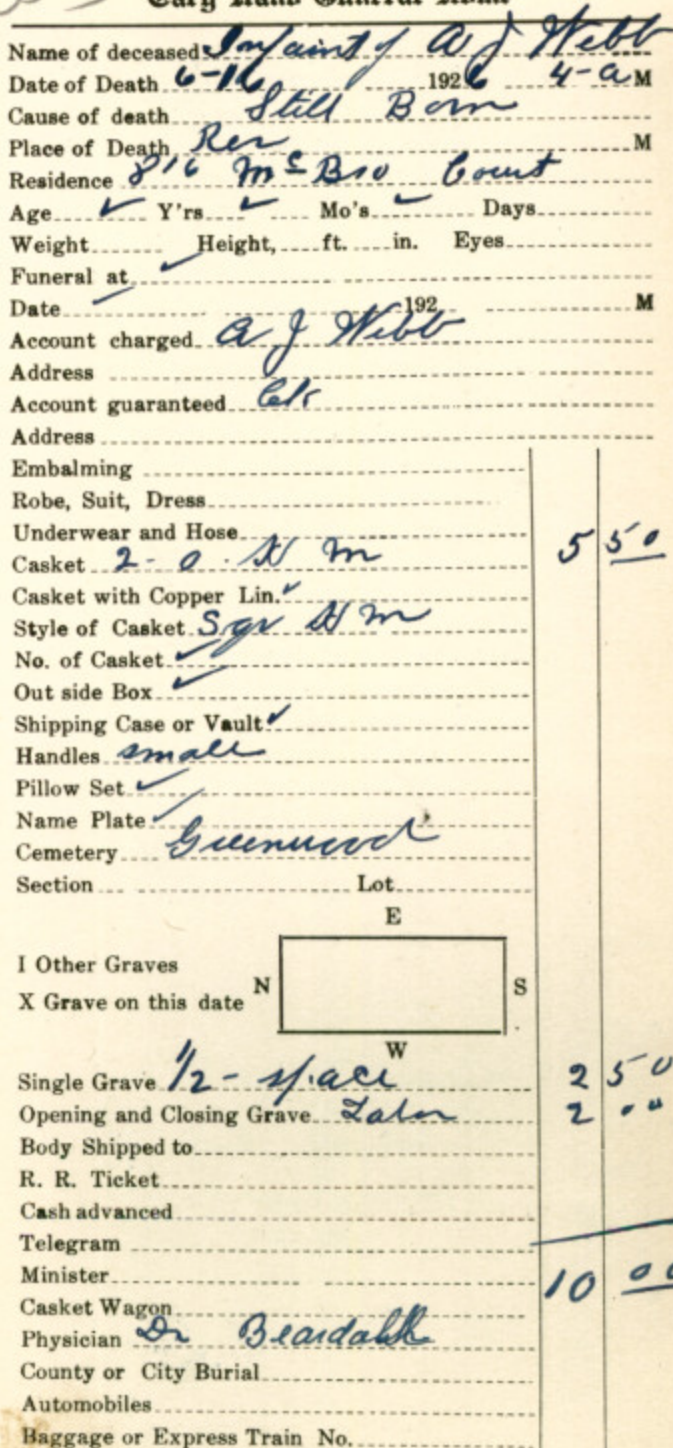 Name of deceased Infaint of A J Webb
Date of Death 6-16 1926 4-a M
Cause of death Still Born
Place of Death Res M
Residence 816 Court
Age ✓ Y'rs ✓ Mo's ✓ Days
Weight Height, ft. in. Eyes
Funeral at ✓
Date ✓ 192 M
Account charged A J Webb
Address
Account guaranteed
Address
Embalming
Robe, Suit, Dress
Underwear and Hose
Casket 2-0. M 5 50
Casket with Copper Lin. ✓
Style of Casket Sqr M
No. of Casket ✓
Out side Box ✓
Shipping Case or Vault ✓
Handles small
Pillow Set ✓
Name Plate ✓
Cemetery Greenwood
Section Lot
E
I Other Graves
N S
X Grave on this date
W
Single Grave 1/2 - space 2 50
Opening and Closing Grave Labor 2 00
Body Shipped to
R. R. Ticket
Cash advanced
Telegram
Minister 10 00
Casket Wagon
Physician Dr
County or City Burial
Automobiles
Baggage or Express Train No.